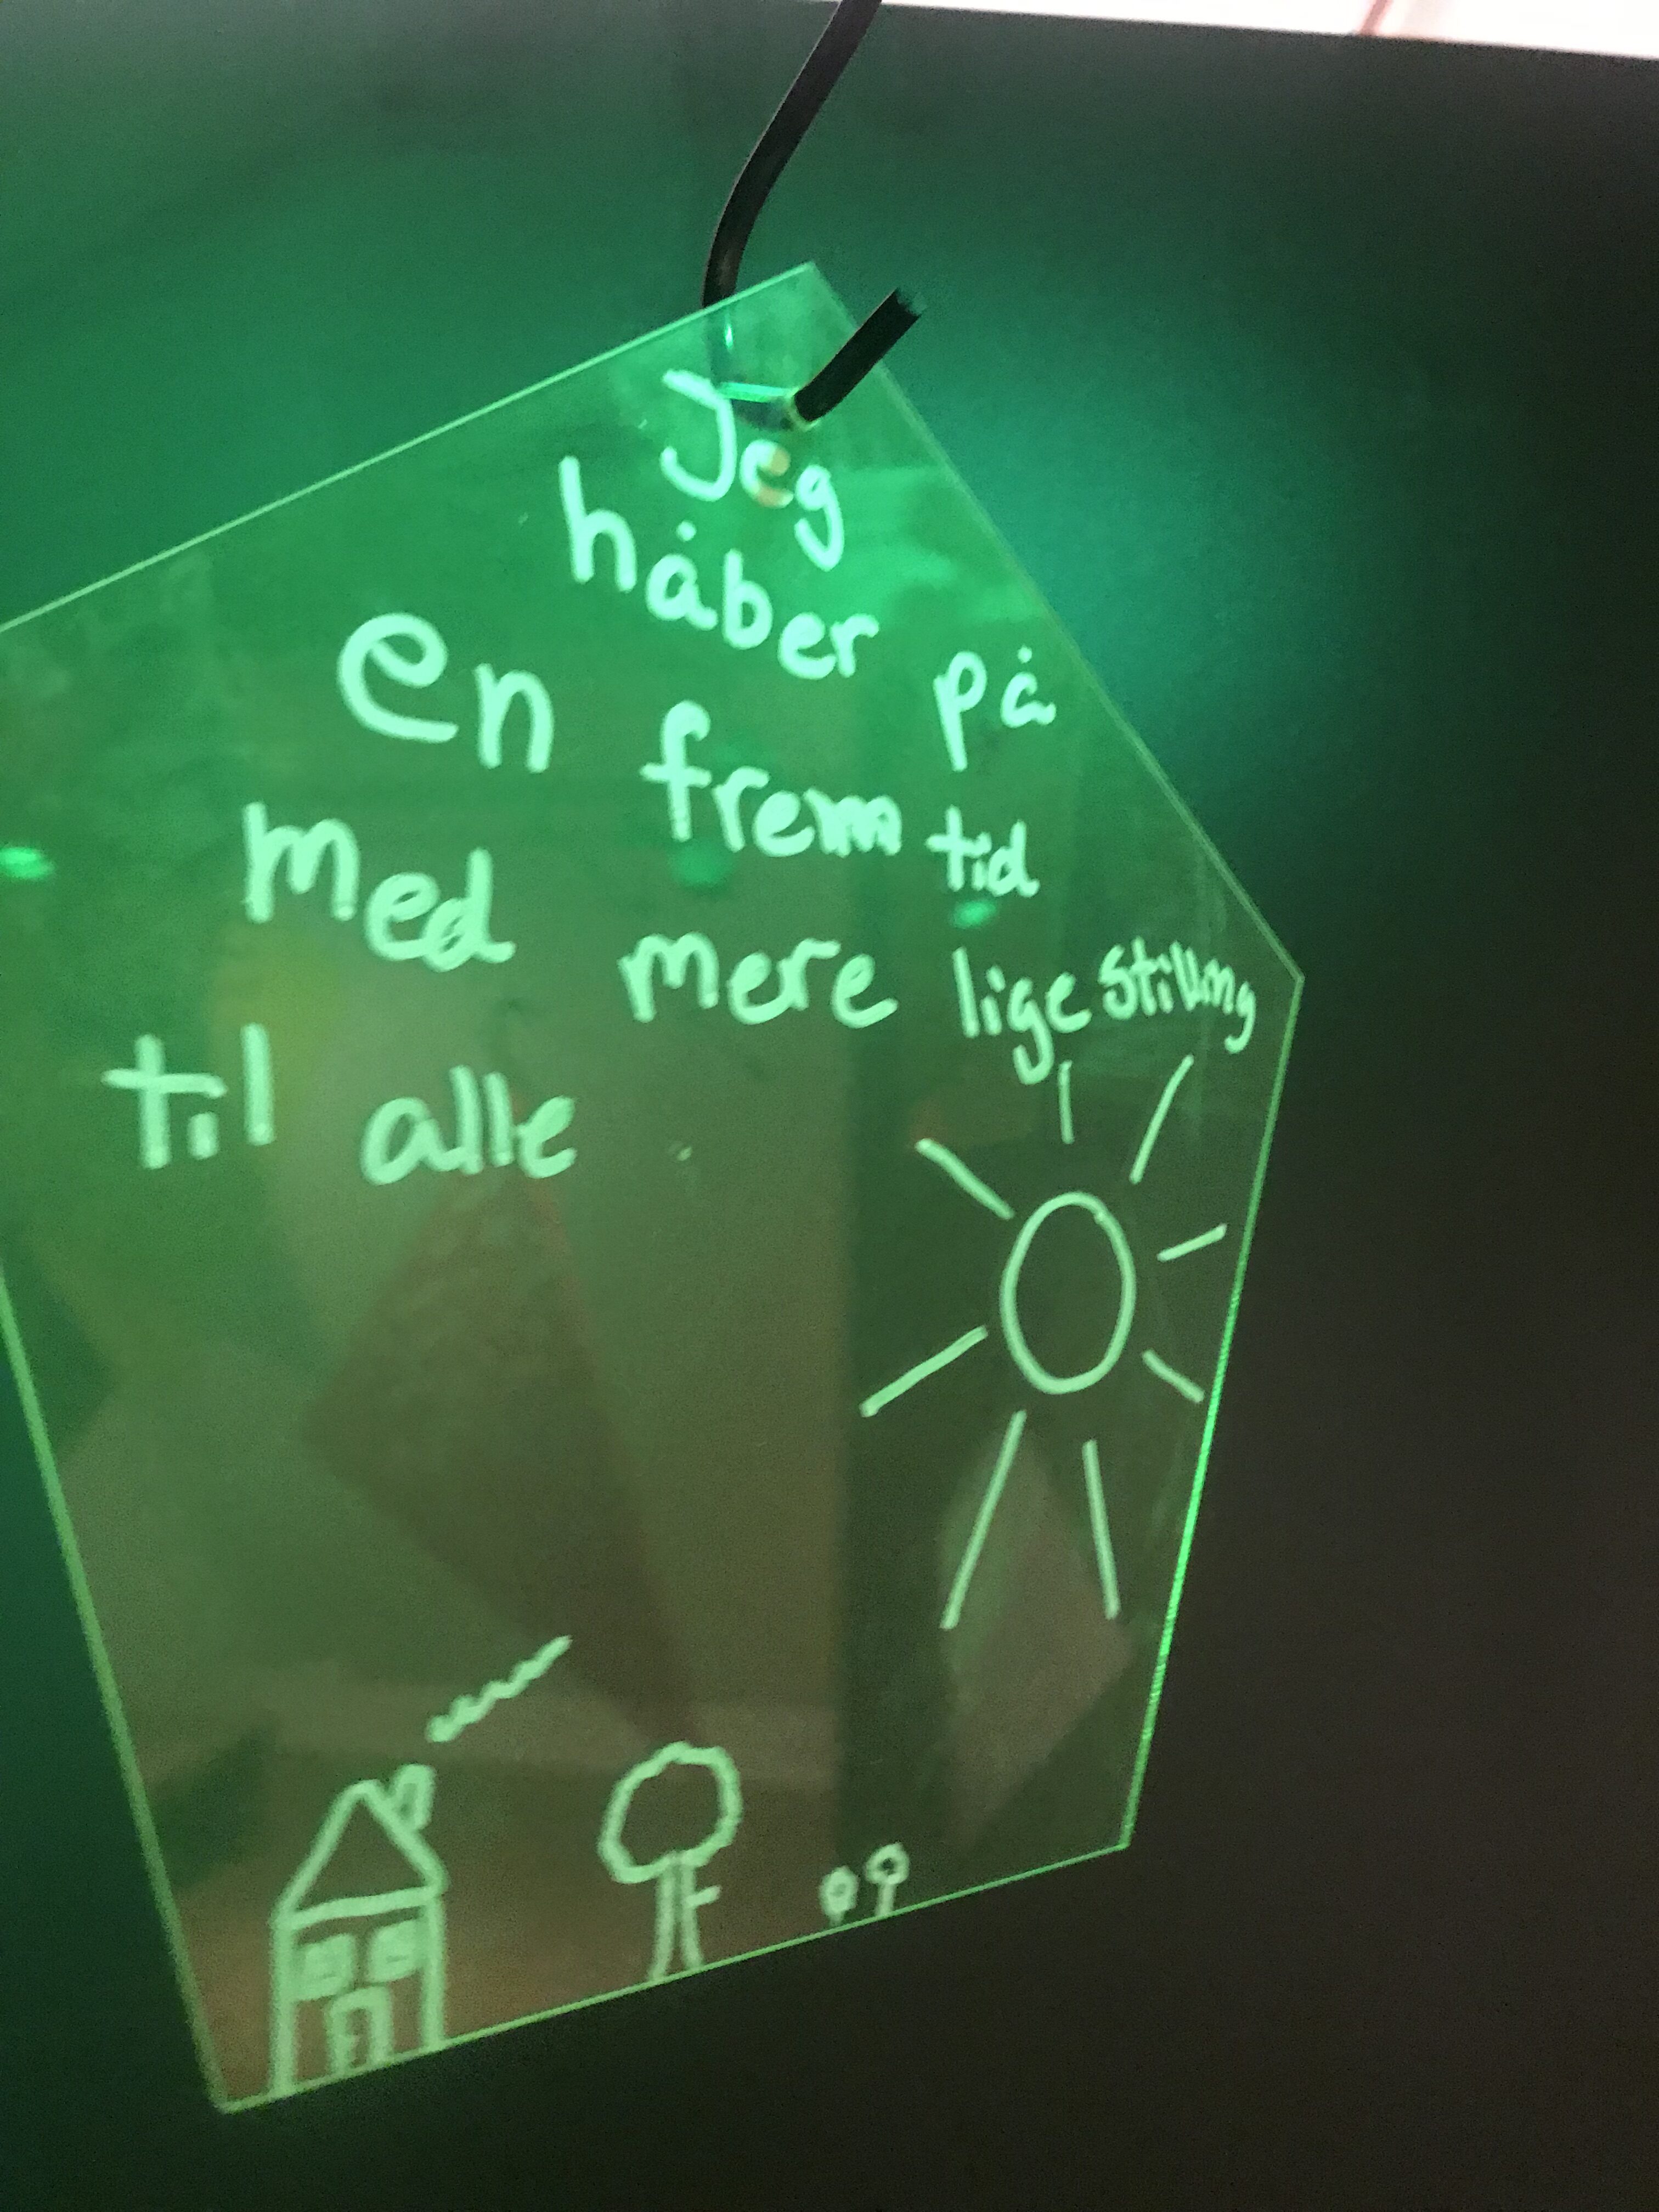 Jeg
håber på
en fremtid
med mere ligestilling
til alle